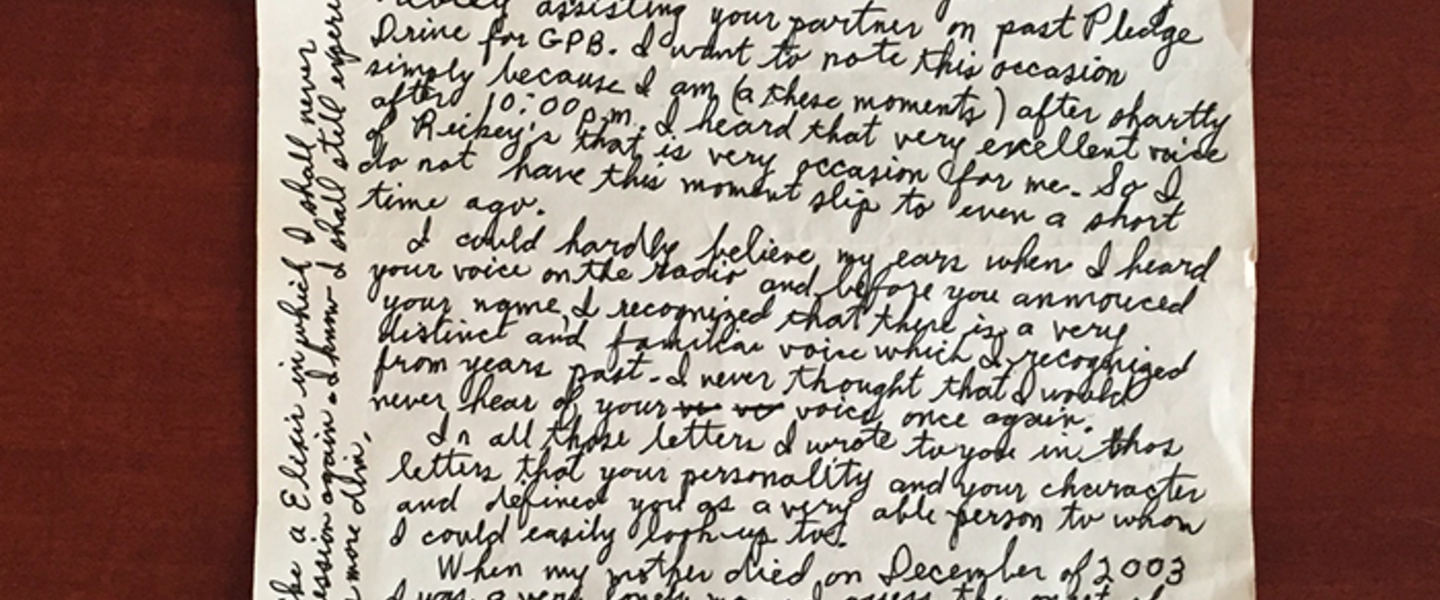 assisting your partner on past Pledge
Drive for GPB. I want to note this occasion
simply because I am (a these moments) after shartly
after 10:00 p.m. I heard that very excellent voice
of Rickey's that is very occasion for me. So I
do not have this moment slip to even a short
time ago.
I could hardly believe my ears when I heard
your voice on the radio and before you annnouced
your name, I recognized that there is a very
distinct and familiar voice which I recognized
from years past. I never thought that I would
never hear of your voice once again.
In all those letters I wrote to you in thos
letters that your personality and your character
and defined you as a very able person to whom
I could easily look-up to.
When my mother died on December of 2003
I was a very
a Elixir in which I shall never
again. I know I shall still
more